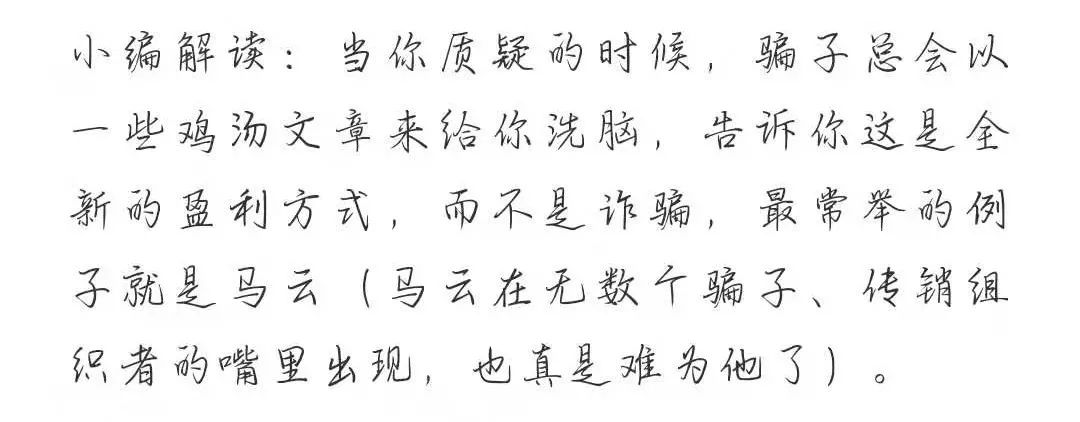 小编解读：当你质疑的时候，骗子总会以
一些鸡汤文章来给你洗脑，告诉你这是全
新的盈利方式，而不是诈骗，最常举的例
子就是马云（马云在无数个骗子、传销组
织者的嘴里出现，也真是难为他了）。